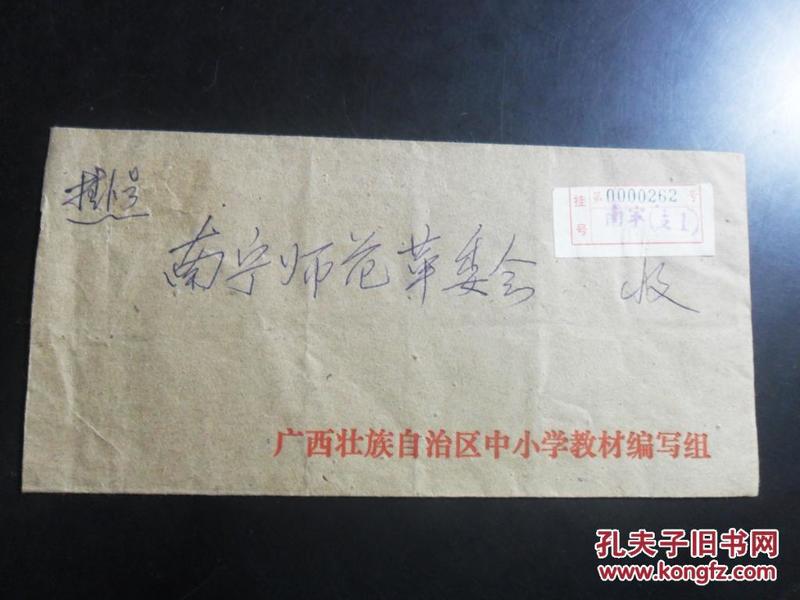 挂号
挂号
第0000262号
南宁(支1)
南宁师范革委会 收
广西壮族自治区中小学教材编写组
孔夫子旧书网
www.kongfz.com